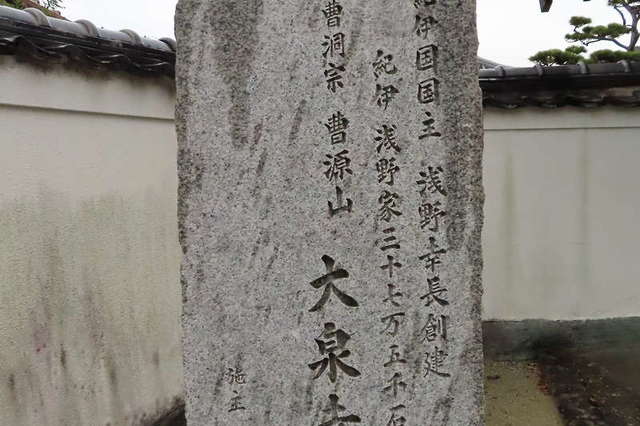 紀伊国国主 浅野幸長創建
紀伊 浅野家三十七万五千石
曹洞宗 曹源山 大泉寺
施主